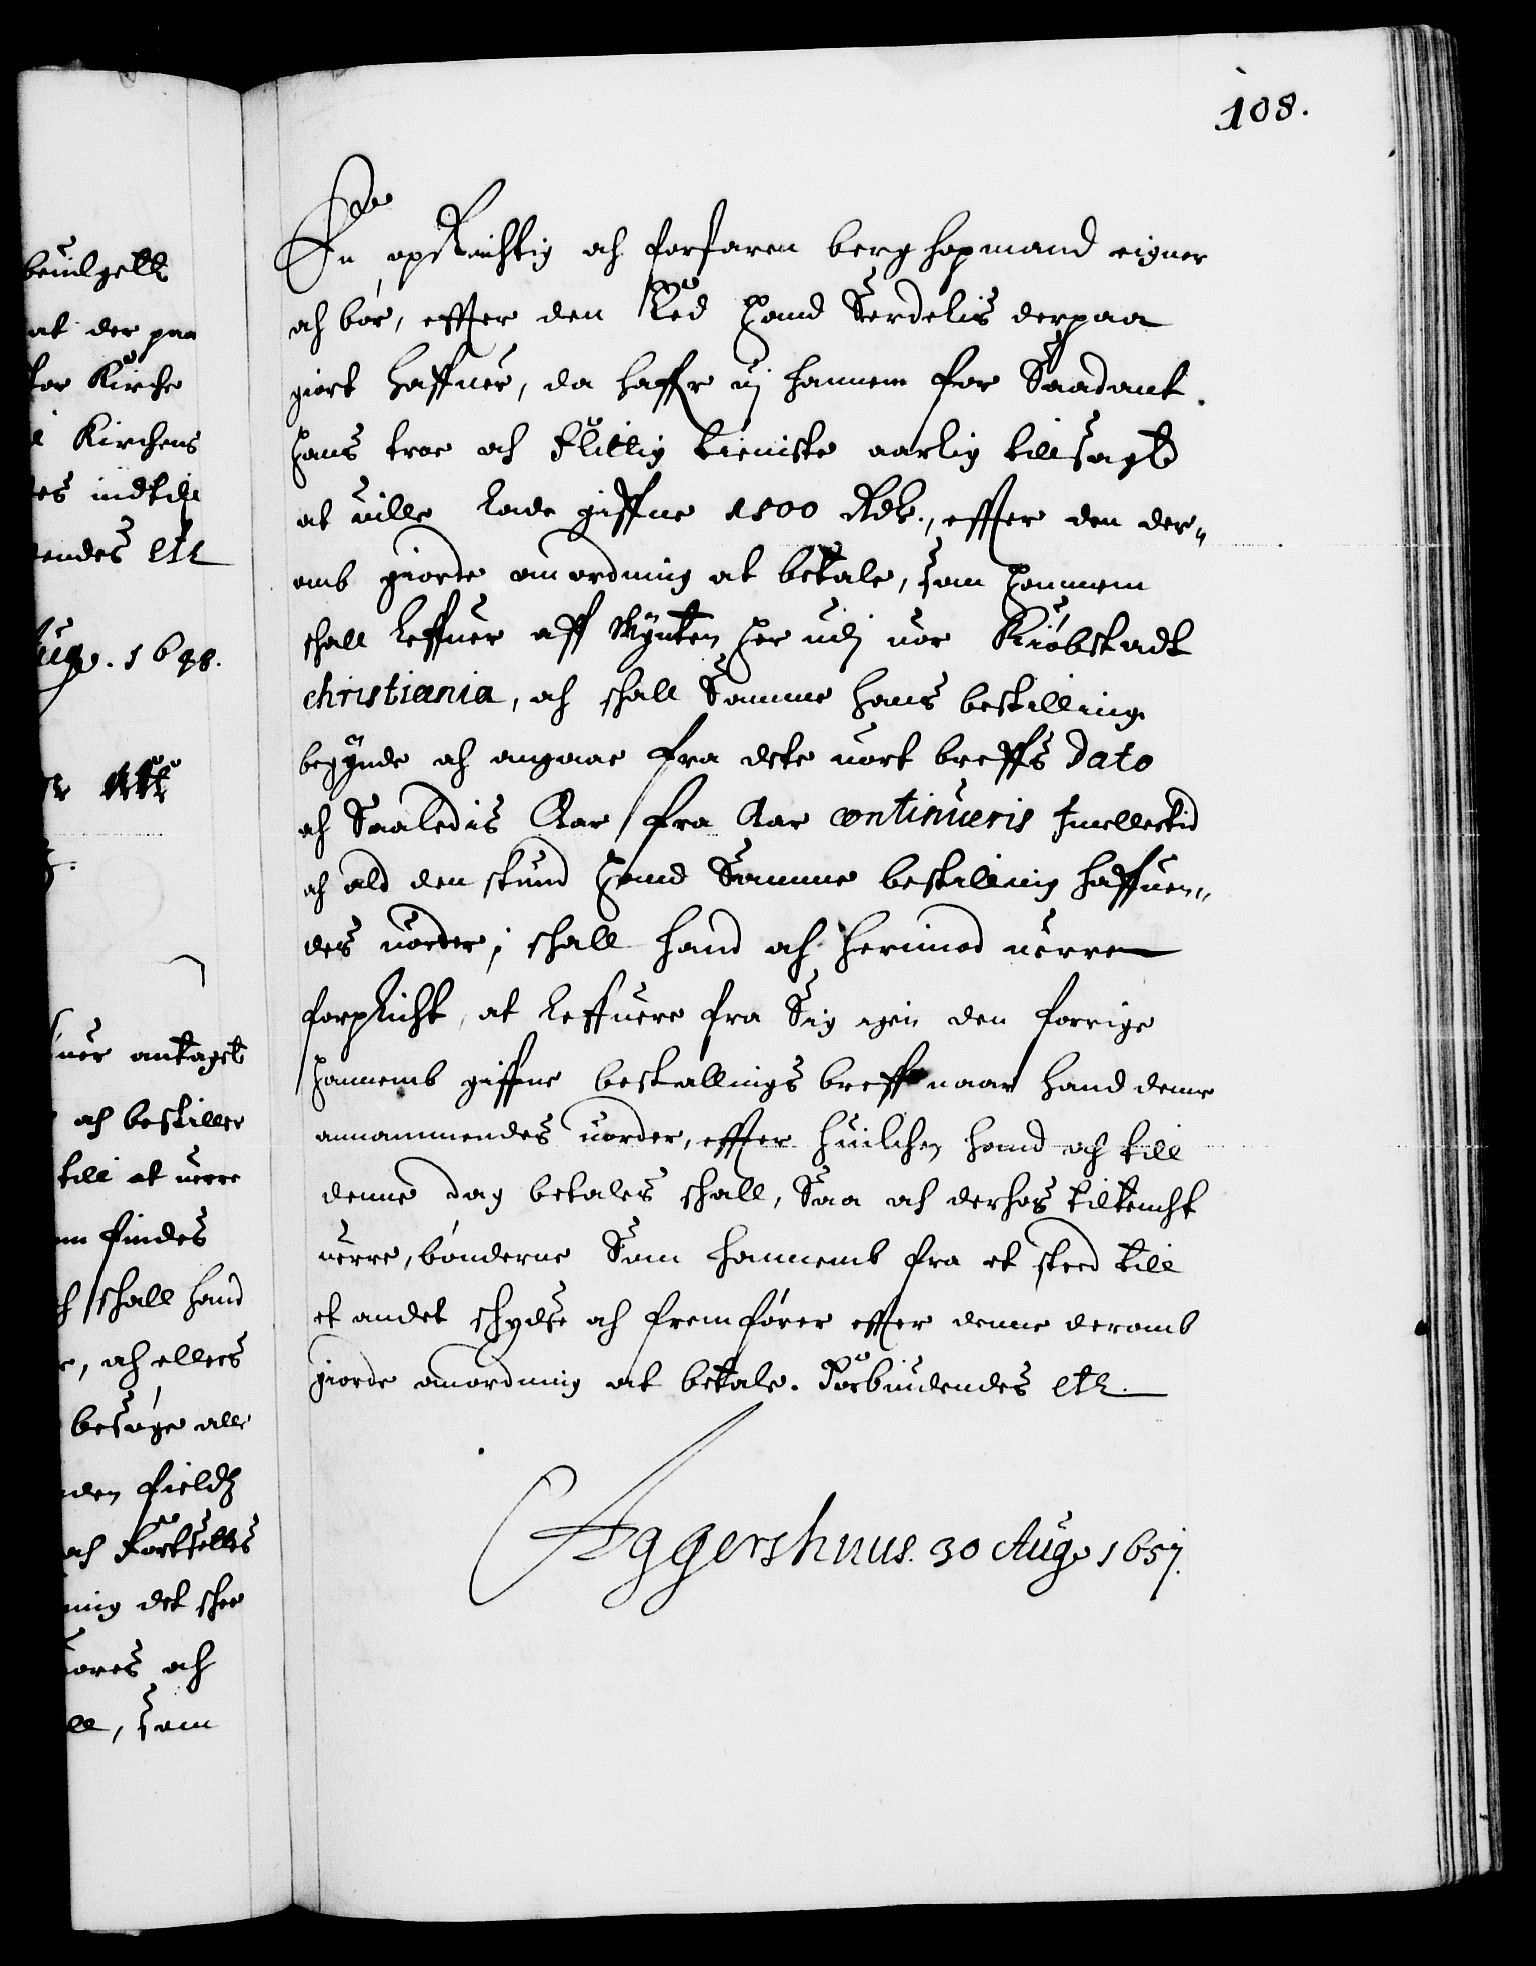 108.
En opRichtig och forfaren berg hopmand eigner
och bør, effter den Eed Hand Serdelis derpaa
giort haffuer, da haffr vj hannem for Saadant
Hans troe och flittig tieniste aarlig tillsagt
at ville lade giffue 1500 Rdr., effter den der„
omb giorde anordning at betale, som Hannem
schall leffuer aff Mynten her udj vor Kiøbstadt
christiania, och schall Samme hans bestilling
begynde och angaae fra dete vort breffs Dato
och Saaledis Aar fra Aar continueris Imellertid
och ald den stund Hand Samme bestilling haffuen„
des vorder; schall hand och herimod verre
forplicht, at leffuere fra Sig igen den forrige
Hannemb giffne bestallings breff naar hand denne
annammendes vorder, effter huilchen hand och till
denne dag betales schall, Saa och derhos tiltencht
verre, bønderne Som hannemb fra et sted till
et andet schydtze och fremfører effter denne deromb
giorde anordning at betale. Forbiudendes etc.
Aggershuus. 30 Aug. 1657.
beuilgett
at der paa
for Kirche
Kirchens
es indtil
endes etc
Aug. 1648.
antaget
och bestiller
till at verre
findes
schall hand
, och ellers
besøge alle
den field
och
ning det schee
och
, som